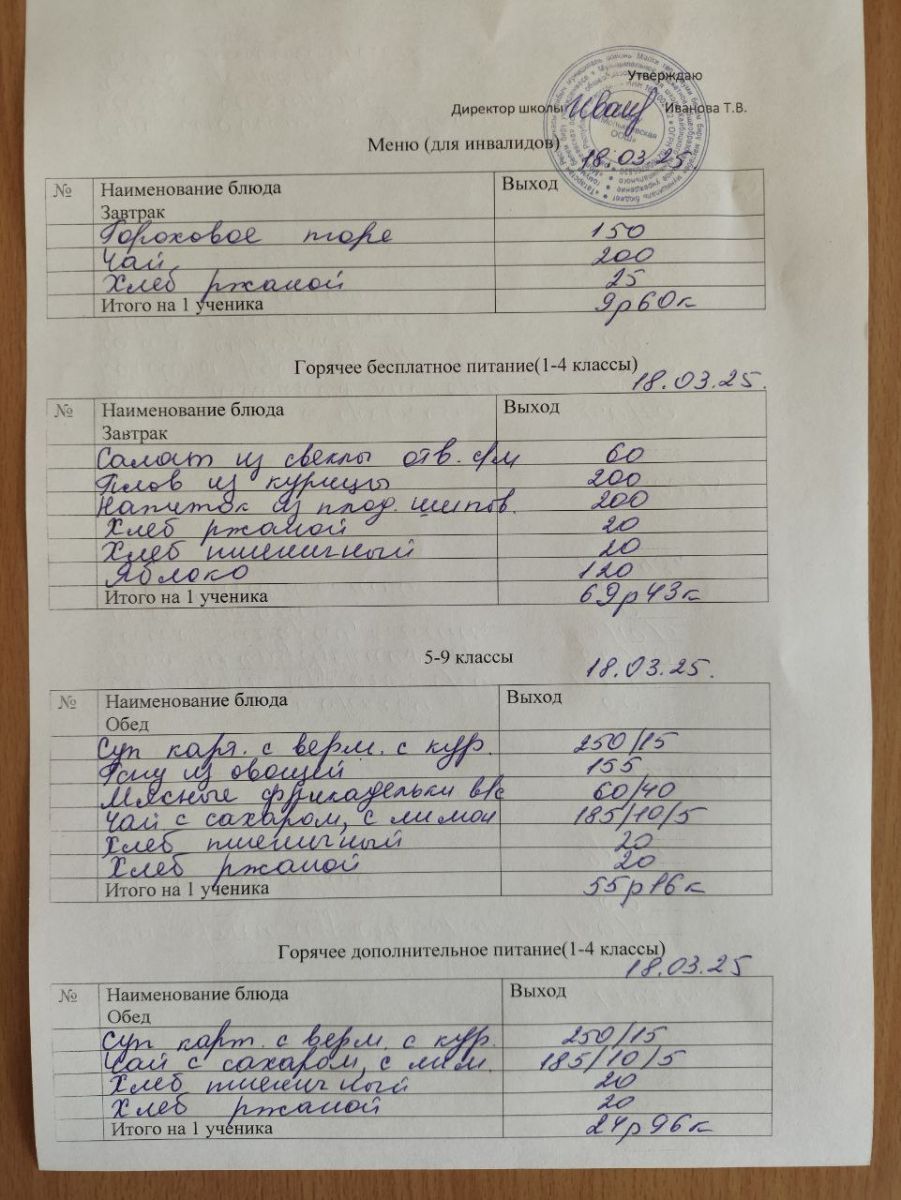 Утверждаю
Директор школы Иванова Т.В.
Меню (для инвалидов)
18.03.25.
№ Наименование блюда Выход
Завтрак
Гороховое пюре 150
Чай 200
Хлеб ржаной 25
Итого на 1 ученика 9р60к
Горячее бесплатное питание(1-4 классы)
18.03.25.
№ Наименование блюда Выход
Завтрак
Салат из свеклы отв. с/м 60
Плов из курицы 200
Напиток из плод. шипов. 200
Хлеб ржаной 20
Хлеб пшеничный 20
Яблоко 120
Итого на 1 ученика 69р43к
5-9 классы
18.03.25.
№ Наименование блюда Выход
Обед
Суп карт. с верм. с кур. 250/15
Рагу из овощей 155
Мясные фрикадельки в/с 60/40
Чай с сахаром, с лимон 185/10/5
Хлеб пшеничный 20
Хлеб ржаной 20
Итого на 1 ученика 55р16к
Горячее дополнительное питание(1-4 классы)
18.03.25
№ Наименование блюда Выход
Обед
Суп карт. с верм. с кур. 250/15
Чай с сахаром, с лим. 185/10/5
Хлеб пшеничный 20
Хлеб ржаной 20
Итого на 1 ученика 24р96к